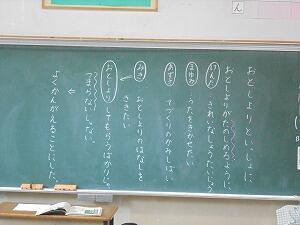 おとしよりといっしょに、
おとしよりがたのしめるように、
けんた きれいなしょうたいじょう
まゆみ うたをきかせたい
あずさ てづくりのかみしばい
みさ おとしよりのはなしをききたい
おとしより してもらうばかりじゃつまらないしない。
⇓
よくかんがえることにした。
ん